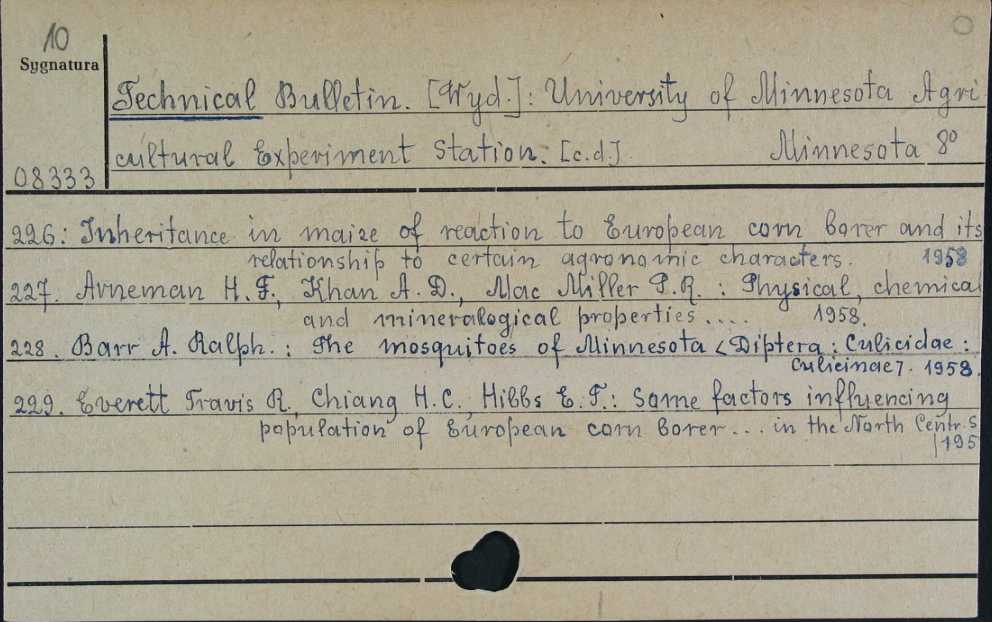 10
Sygnatura
Technical Bulletin. [Wyd.]: University of Minnesota Agri
cultural Experiment Station. [c.d.] Minnesota 8°
08333
226: Inheritance in maize of reaction to European corn borer and its
relationship to certain agronomic characters. 1958
227. Arneman H. F., Khan A. D., Mac Miller P.R. : Physical, chemical
and mineralogical properties .... 1958.
228. Barr A. Ralph. : The mosquitoes of Minnesota <Diptera : Culicidae :
Culicinae7. 1958.
229. Everett Travis R., Chiang H.C., Hibbs E.F.: Some factors influencing
population of European corn borer ... in the North Centr. S
195